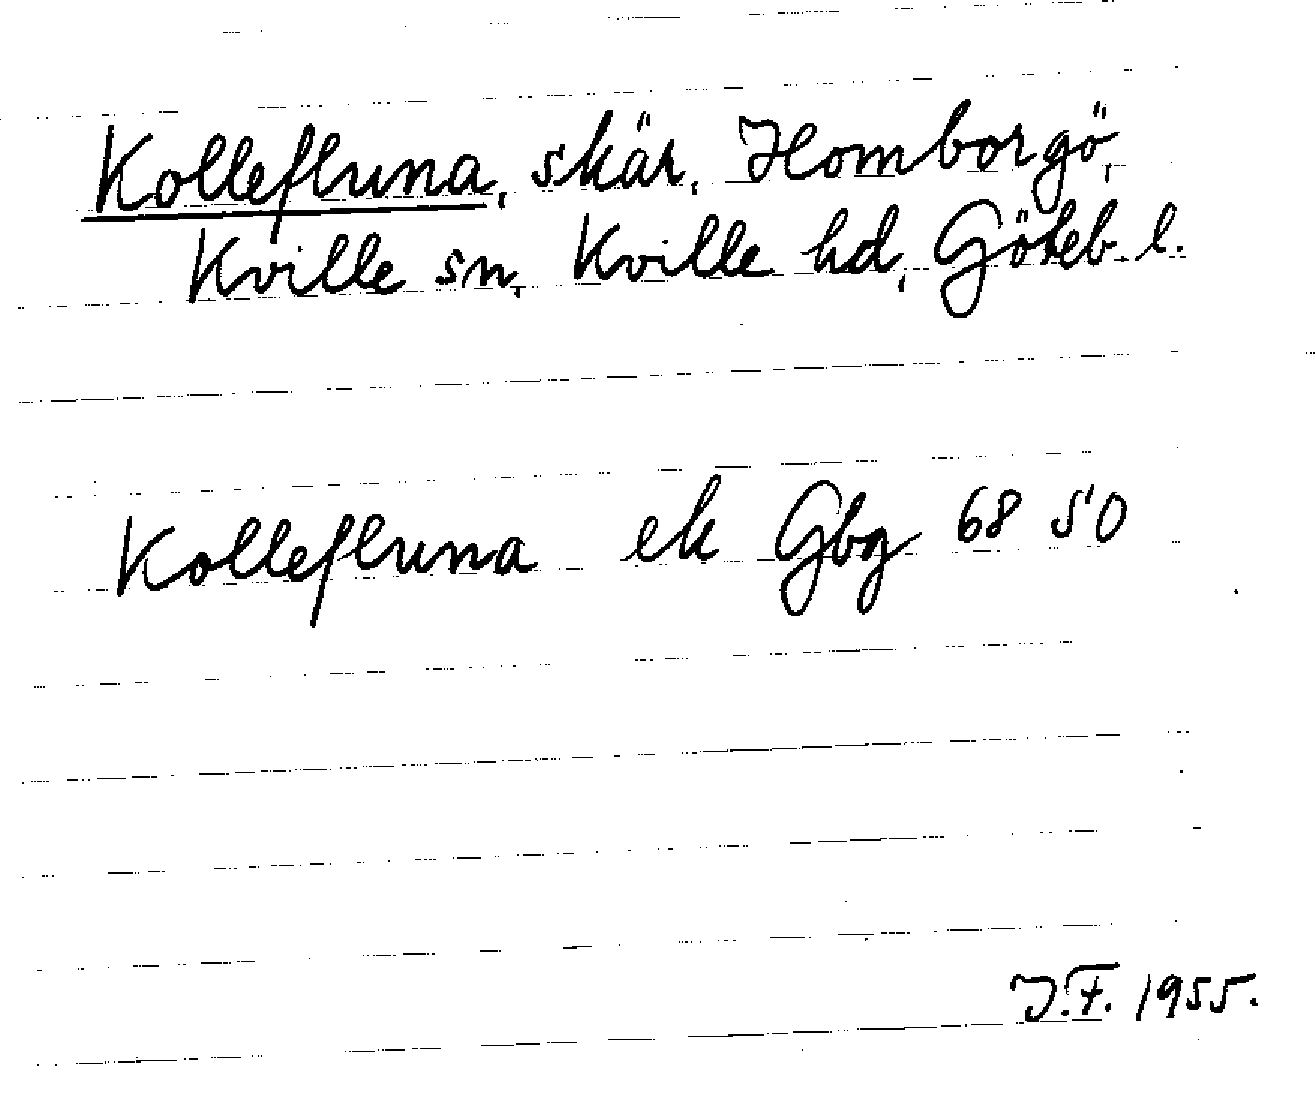 Kollefluna, skär, Homborgö,
Kville sn, Kville hd, Göteb. l.
Kollefluna ek Gbg 68 50
J.F. 1955.